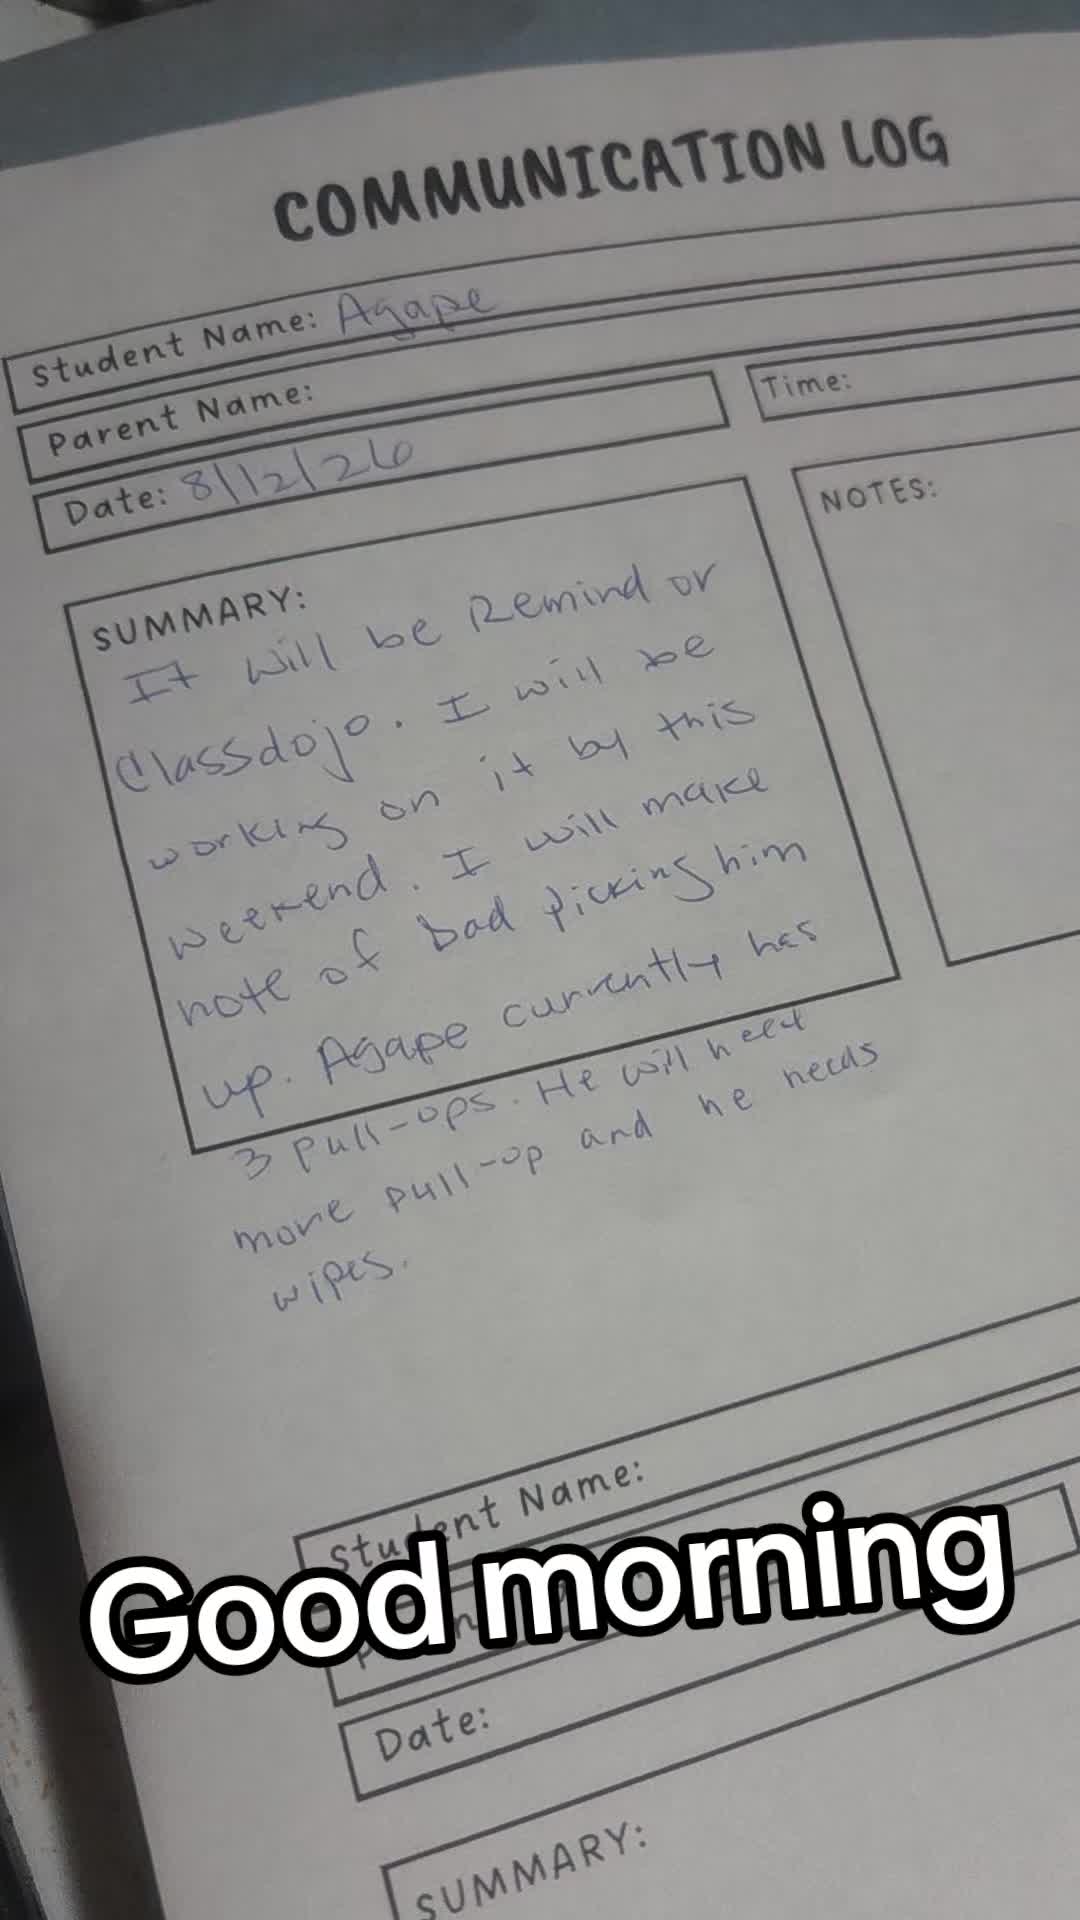 COMMUNICATION LOG
Student Name: Agape
Parent Name:
Date: 8/12/26
Time:
SUMMARY:
It will be Remind or
Classdojo. I will be
working on it by this
weekend. I will make
note of dad picking him
up. Agape currently has
3 pull-ops. He will need
more pull-op and he needs
wipes.
NOTES:
Student Name:
Good morning
Date:
SUMMARY: